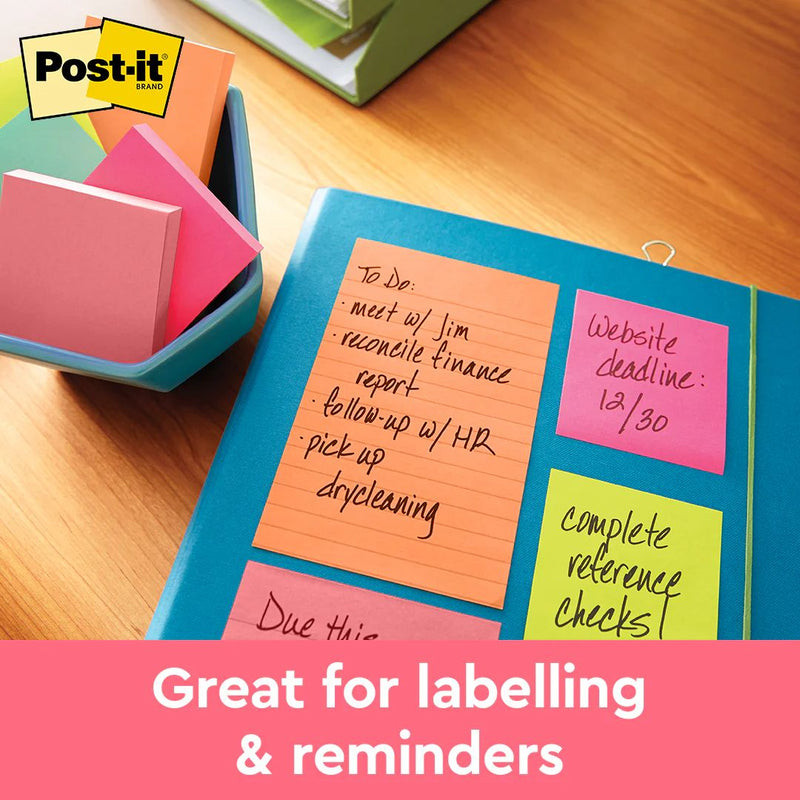 Post-it®
BRAND
To Do:
· meet w/ Jim
· reconcile finance
report
· follow-up w/ HR
· pick up
drycleaning
Website
deadline:
12/30
complete
reference
checks!
Due this
Great for labelling
& reminders